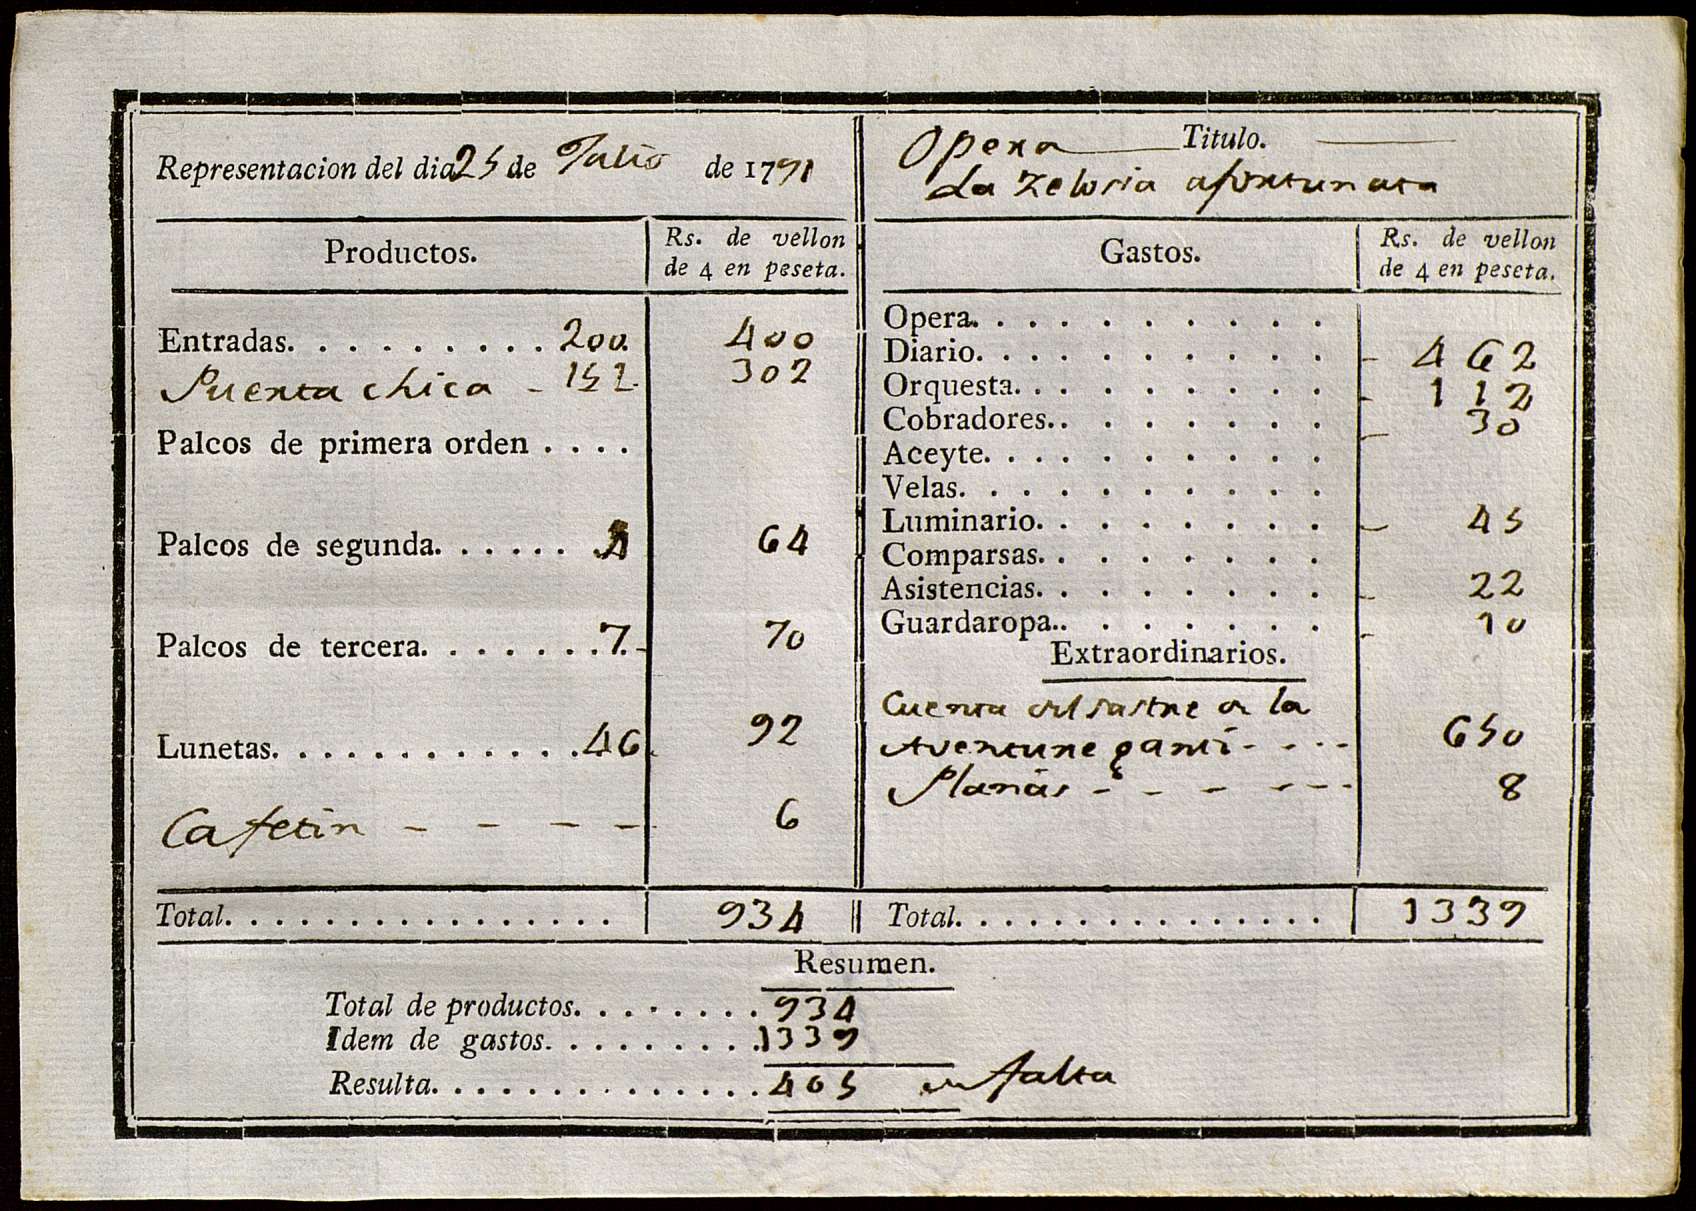 Representacion del dia 25 de Julio de 1791
Opera Titulo.
La Zelosia afortunata
Productos.
Rs. de vellon
de 4 en peseta.
Entradas. . . . . . . . . 200. 400
Puerta chica - 151. 302
Palcos de primera orden . . . .
Palcos de segunda. . . . . . 4 64
Palcos de tercera. . . . . . . 7. - 70
Lunetas. . . . . . . . . . . . . 46. 92
Cafetin - - - - - 6
Total. . . . . . . . . . . . . . . . . 934
Gastos.
Rs. de vellon
de 4 en peseta.
Opera. . . . . . . . . .
Diario. . . . . . . . . . - 462
Orquesta. . . . . . . . . - 112
Cobradores. . . . . . . . - 30
Aceyte. . . . . . . . . .
Velas. . . . . . . . . . .
Luminario. . . . . . . . - 45
Comparsas. . . . . . . .
Asistencias. . . . . . . . - 22
Guardaropa. . . . . . . . - 10
Extraordinarios.
Cuenta del sastre de la
- - - - 650
Planas - - - - - - 8
Total. . . . . . . . . . . . . . . 1339
Resumen.
Total de productos. . . . . . . . 934
Idem de gastos. . . . . . . . . 1339
Resulta. . . . . . . . . . . . . . 405 en falta